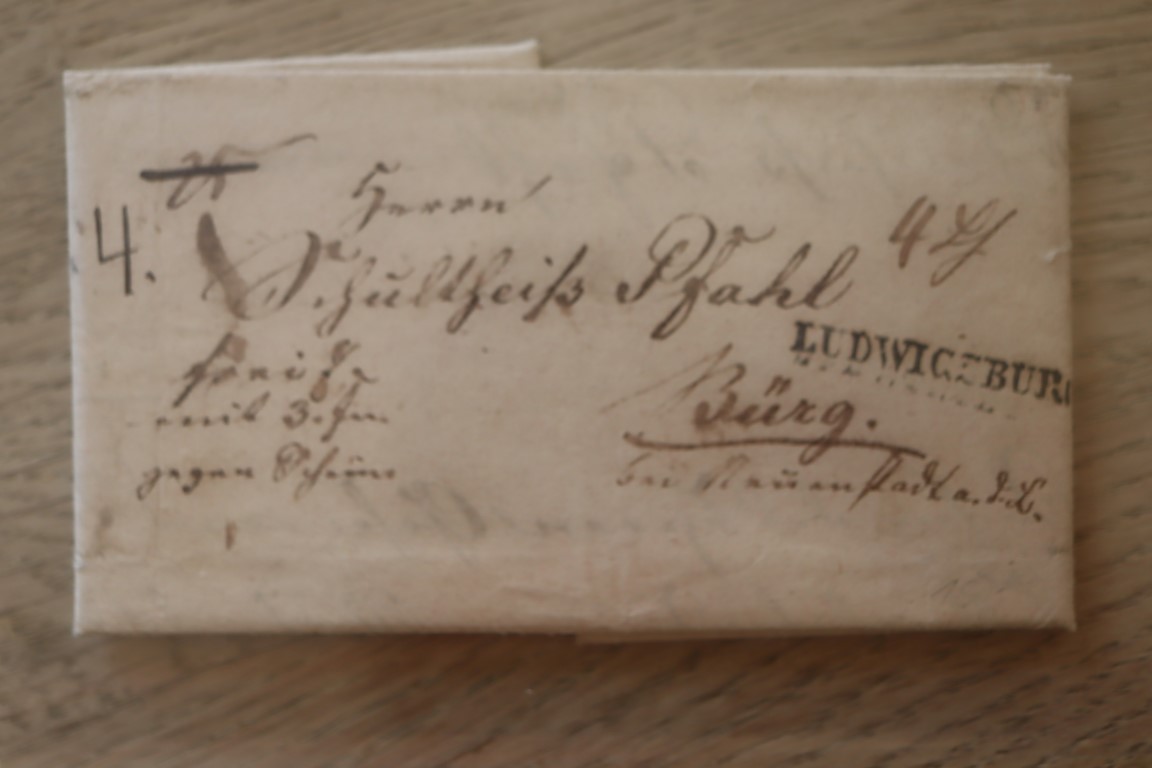 4.
Herrn
Schultheiß Pfahl
LUDWIGSBURG
Bürg.
bei Neuenstadt a. d. L.
mit 3.
gegen Schein